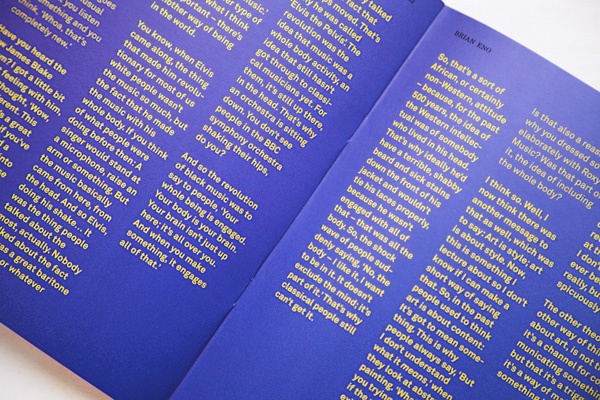 something and you
think, 'Whoa, that's
completely new.'
Have you heard the
new James Blake
got a little bit
feeling with him,
thought, 'Wow,
a great
if you've
into
another way of being
You know, when Elvis
came along, the thing
that made him revolu-
tionary for most of us
while people wasn't
the music so much, but
the fact that he made
the music with his
whole body. If you think
of what people were
doing before then: A
singer would stand at
a microphone, raise an
arm or something. But
the music basically
came from here, from
the head. And so Elvis,
doing his shake… it
was the thing people
talked about the
most, actually. Nobody
talked about the fact
had a great baritone
or whatever
talked
fact that
he moved. That's
Elvis the Pelvis.' The
revolution was the
idea that music was a
whole body activity, an
idea that still hasn't
got though to classi-
cal musicians yet. For
them, it's still up there,
in the head. That's why
an orchestra is sitting
down. You don't see
people in the BBC
symphony orchestra
shaking their hips,
do you?
And so the revolution
of black music was to
say to people, 'Your
whole being is engaged.
Your body is your brain.
Your brain isn't just up
here, it's all over you.
And when you make
something, it engages
all of that.'
BRIAN ENO
So, that's a sort of
African, or certainly
non-Western, attitude
– because for the past
500 years, the idea of
the Western intellec-
tual was of somebody
who lived in his head.
That's why ideally he'd
have a terrible, shabby
beard and sick stains
down the front of his
jacket and wouldn't
tie his laces properly,
because he wasn't
engaged with all of
that – that was all the
body. So, the shock
wave of people sud-
denly saying, 'No, the
body – I like it, I want
to be in it. It doesn't
exclude the mind; it's
part of it.' That's why
classical people still
can't get it.
Is that also a reason
why you dressed
elaborately with Roxy
Music? Was that part of
it, the idea of including
the whole body?
I think so. Well, I
now think there was
another message to
that as well, which was
to say 'Art is style: art
is about style.' Now,
this is something I
lecture about so I don't
know if I can make a
short way of saying
that. So, in the past
people used to think
art is about content:
it's got to mean some-
thing. This is why
people always say, 'But
I don't understand
what it means,' when
they look at abstract
painting. What
you trying
if the
The other
other way of
about art, is not
it's a channel for
municating something
but that it's a
something